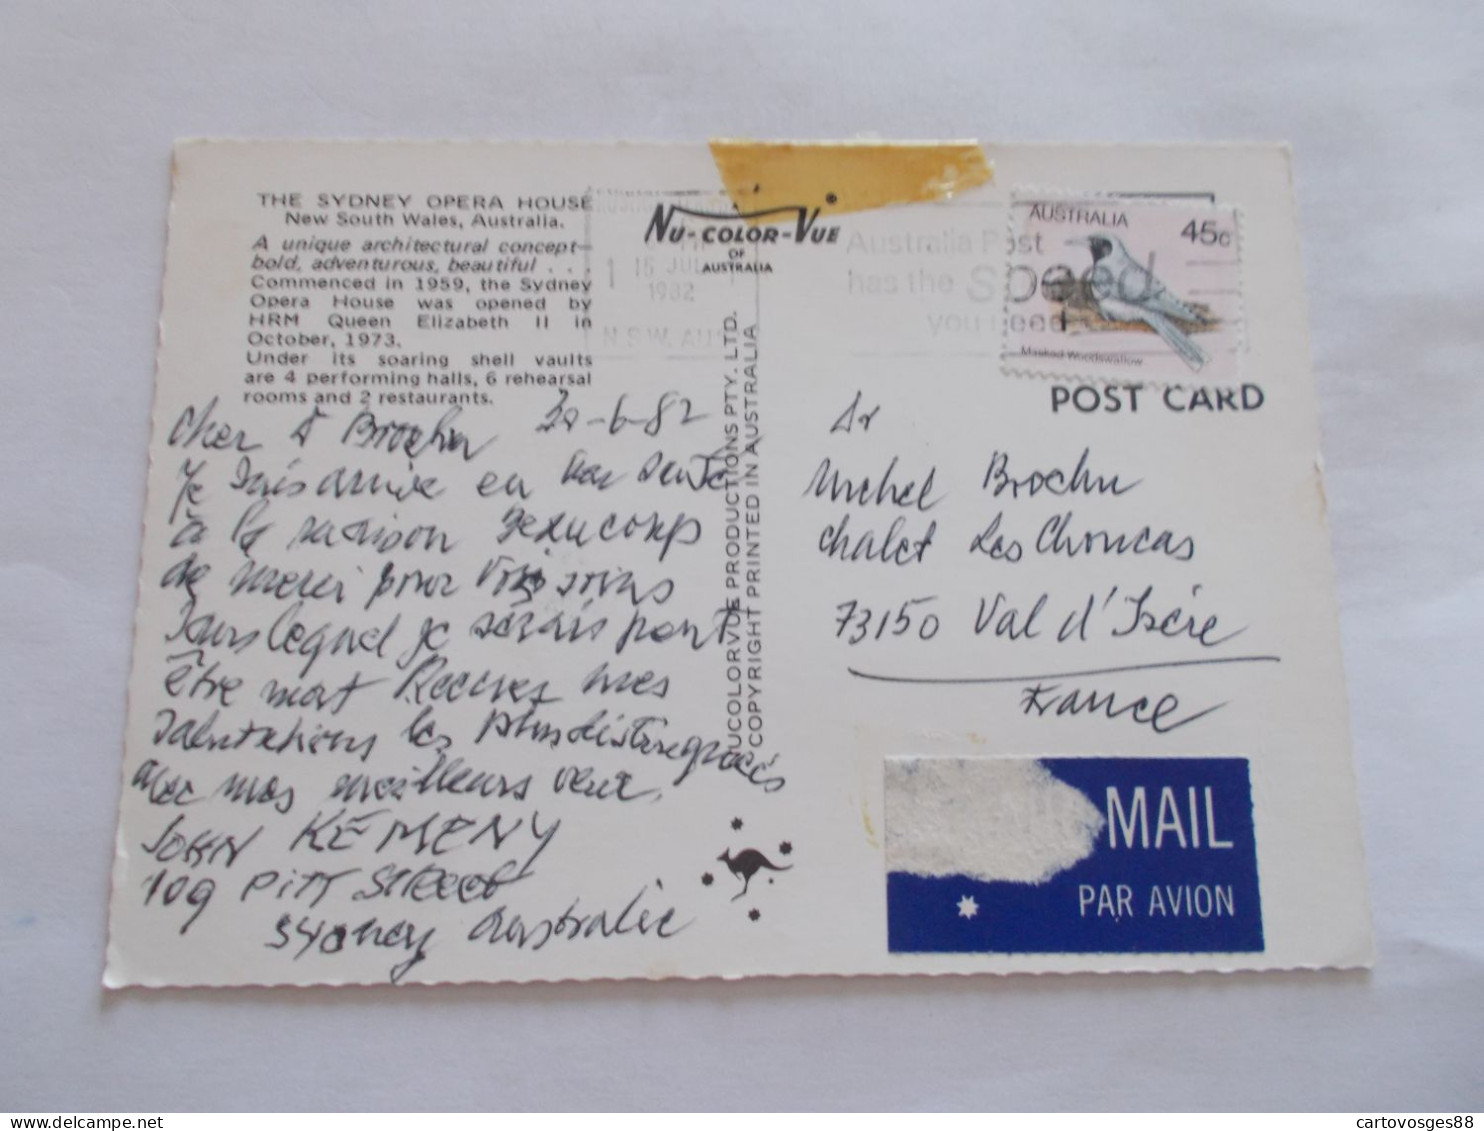 THE SYDNEY OPERA HOUSE
New South Wales, Australia.
A unique architectural concept-
bold, adventurous, beautiful . . .
Commenced in 1959, the Sydney
Opera House was opened by
HRM Queen Elizabeth II in
October, 1973.
Under its soaring shell vaults
are 4 performing halls, 6 rehearsal
rooms and 2 restaurants.
NU-COLOR-VUE
OF
AUSTRALIA
15 JUL
1982
N.S.W. AUS
Australia Post
has the Speed
you need
AUSTRALIA 45c
Masked Woodswallow
POST CARD
NUCOLORVUE PRODUCTIONS PTY. LTD.
COPYRIGHT PRINTED IN AUSTRALIA
Cher Dr Brochu -6-82
Je suis arrivé en
à la maison Beaucoup
de merci pour vos soins
sans lequel je serais peut
être mort Recevez mes
salutations les plus distinguées
avec mes meilleurs veux.
JOHN KEMENY
109 PITT Street
Sydney Australie
Dr
Michel Brochu
chalet Les Choucas
73150 Val d'Isére
France
MAIL
PAR AVION
cartovosges88